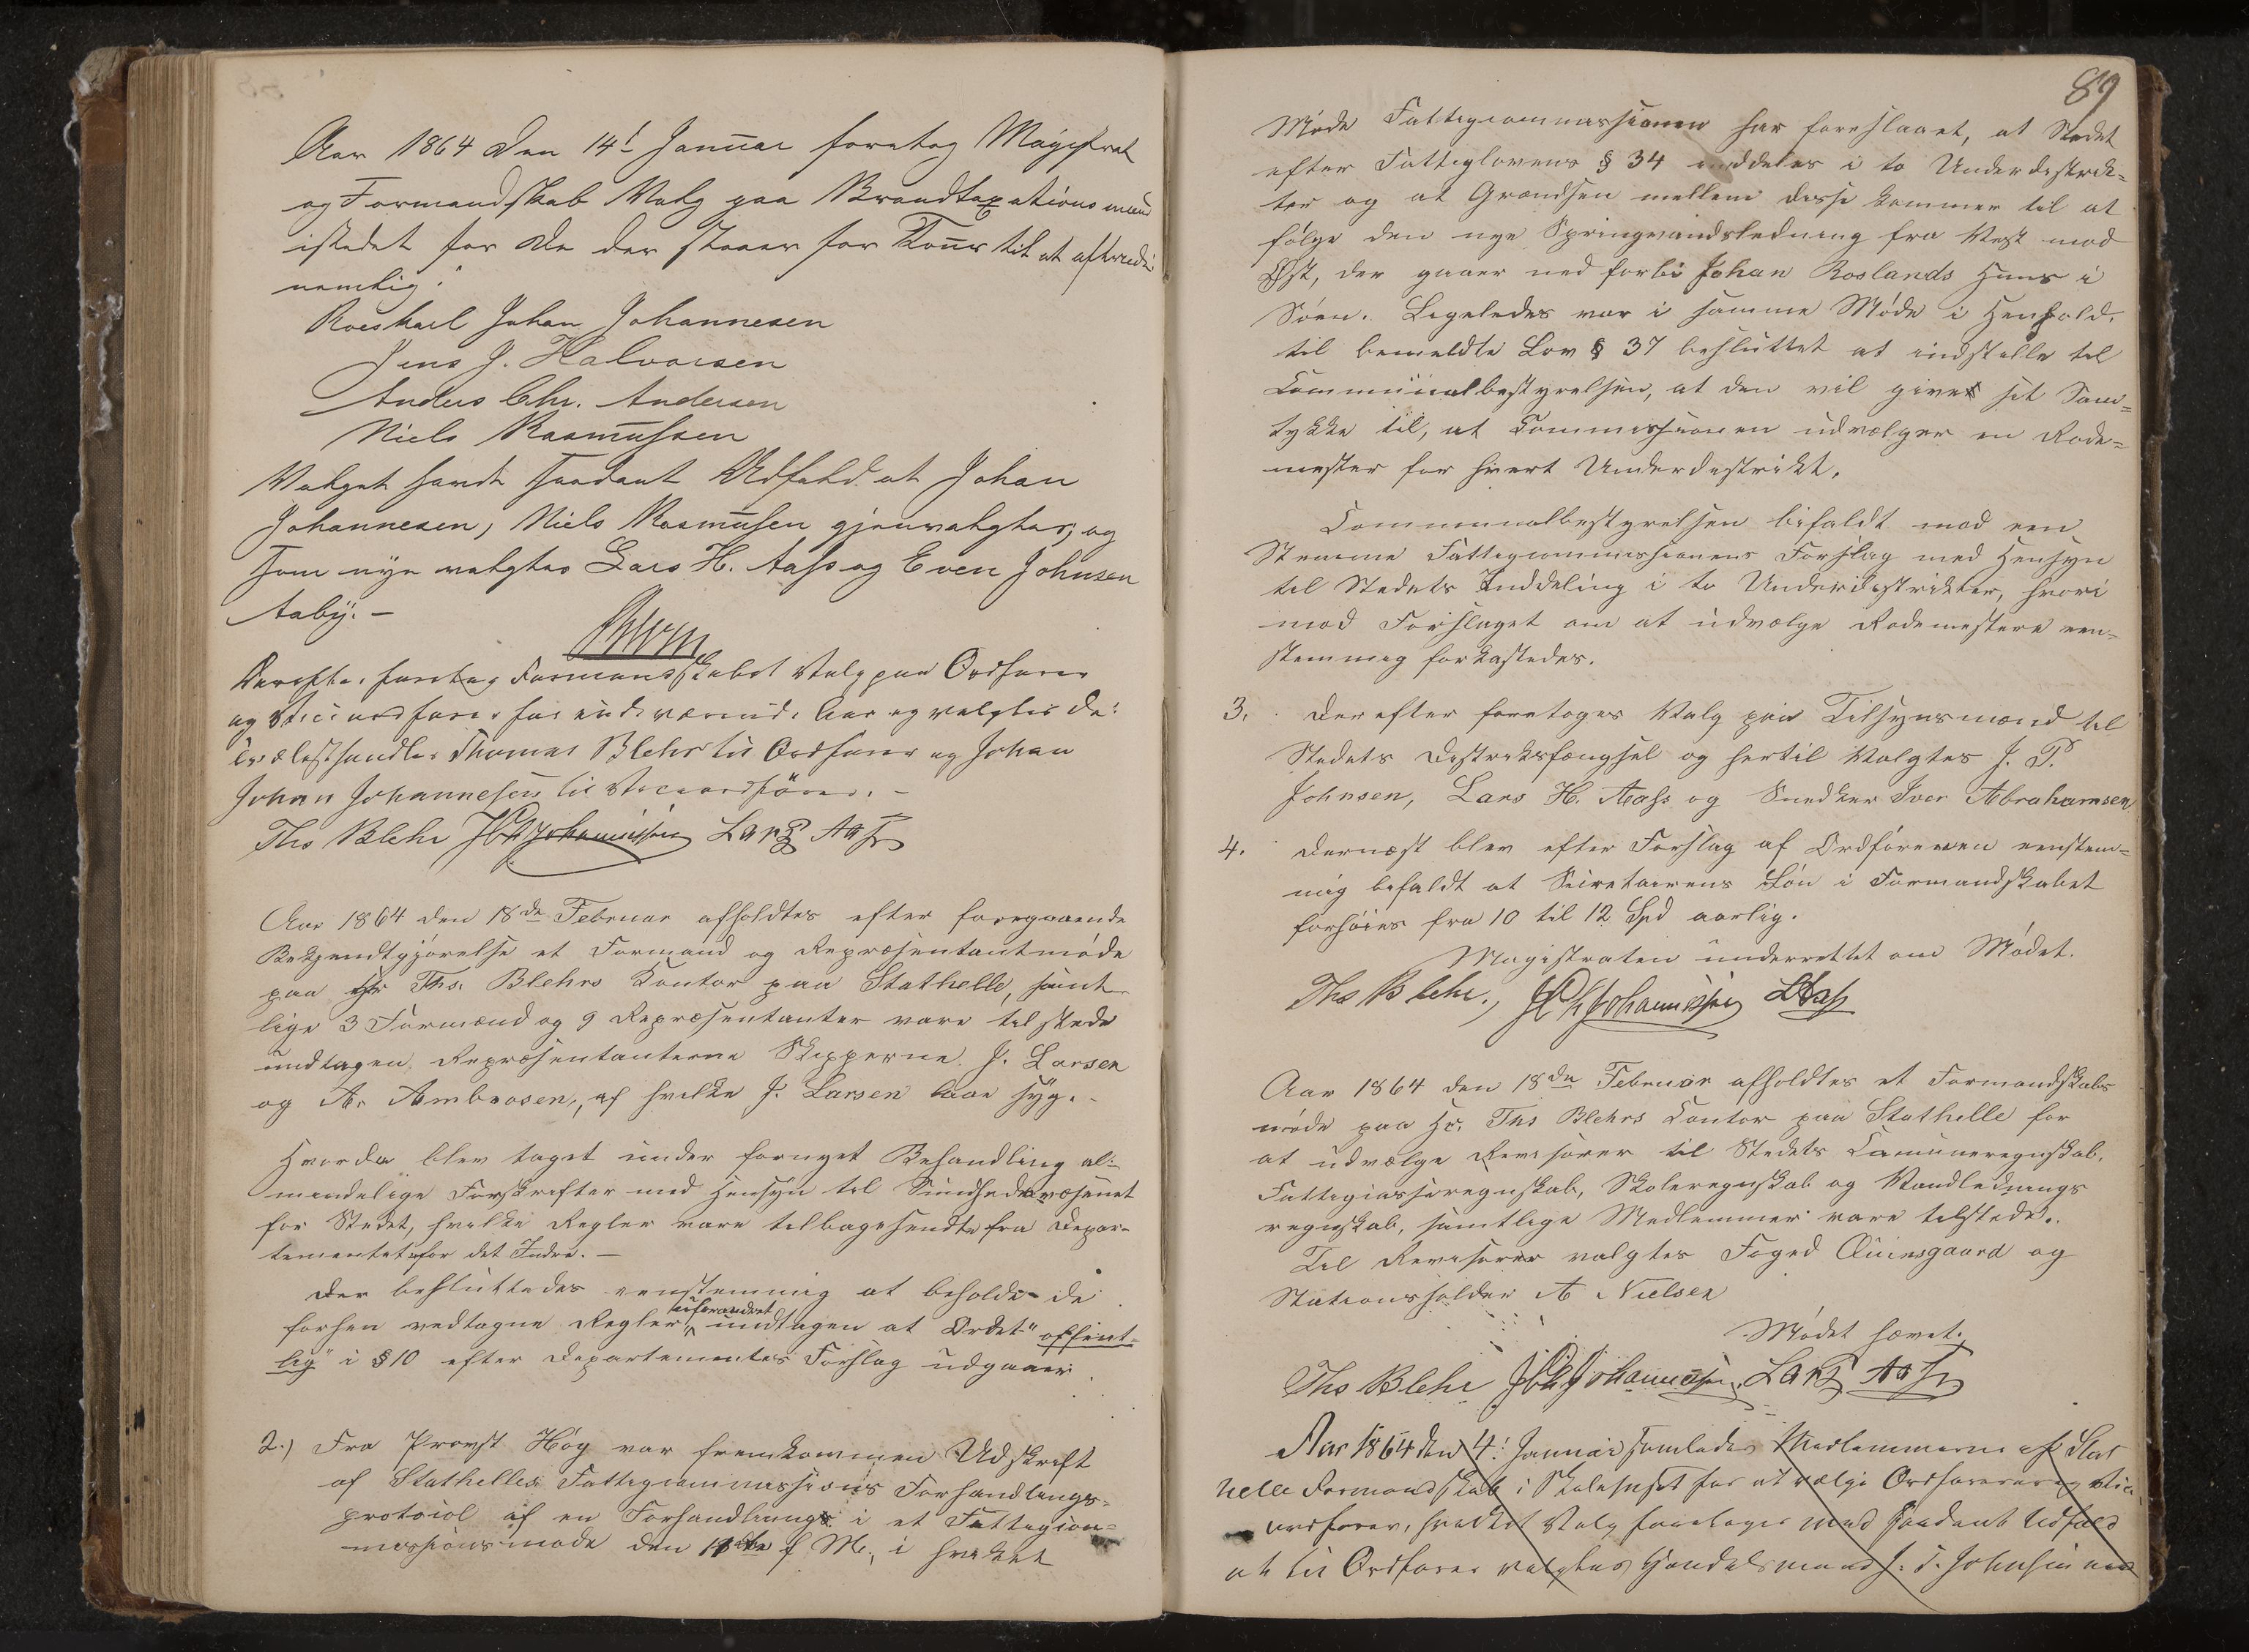 Aar 1864 den 14de Januar foretog Magistrat
og Formandskab Valg paa Brandtaxationsmænd
istedet for de der staaer for Tour til at aftræde
nemlig:
Johan Johannesen
Jens J. Halvorsen
Anders Chr. Andersen
Niels Rasmussen
Valget havde saadant Udfald at Johan
Johannesen, Niels Rasmussen gjenvalgtes, og
som nye valgtes Lars H. Aass og Even Johnsen
Aaby. –
Derefter foretog Formandskabet Valg paa Ordfører
og Viceordfører for indeværende Aar og valgtes da:
Thomas Blehr til Ordfører og Johan
Johan Johannesen til Viceordfører. –
Ths Blehr Joh Johannessen Lars Aass
Aar 1864 den 18de Februar afholdtes efter foregaaende
Bekjendtgjørelse et Formand og Repræsentantmøde
paa Hr Ths. Blehrs Contor paa Stathelle, samt-
lige 3 Formænd og 9 Repræsentanter vare tilstede
undtagen Repræsentanterne Skipperne J. Larsen
og A. Ambrosen, af hvilke J. Larsen laae syg. –
Hvorda blev taget under fornyet Behandling al-
mindelige Forskrifter med Hensyn til Sundhedsvæsenet
for Stedet, hvilke Regler vare tilbagesendte fra Depar-
tementet for det Indre. –
Der besluttedes eenstemmig at beholde de
forhen vedtagne Regler uforandret undtagen at Ordet "offent-
lig" i § 10 efter Departementets Forslag udgaaer.
2.) Fra Provst Høg var fremkommen Udskrift
af Stathelles Fattigcommissions Forhandlings-
protocol af en Forhandling i et Fattigcom-
missionsmøde den 11te f. M., i hvilket
89
Møde Fattigcommissionen har foreslaaet, at Stedet
efter Fattiglovens § 34 inddeles i to Underdistrik-
ter og at Grændsen mellem disse kommer til at
følge den nye Springvandsledning fra Vest mod
Øst, der gaaer ned forbi Johan Roslands Huus i
Søen. Ligeledes var i samme Møde i Henhold
til bemeldte Lov § 37 besluttet at indstille til
Communalbestyrelsen, at den vil give sit Sam-
tykke til, at Commissionen udvælger en Rode-
mester for hvert Underdistrikt.
Communalbestyrelsen bifaldt mod een
Stemme Fattigcommissionens Forslag med Hensyn
til Stedets Inddeling i to Underdistrikter, hvori
mod Forslaget om at udvælge Rodemestere een-
stemmig forkastedes.
3. Derefter foretoges Valg paa Tilsynsmænd til
Stedets Distriktsfængsel og hertil Valgtes J. T.
Johnsen, Lars H. Aass og Snedker Iver Abrahamsen
4. Dernæst blev efter Forslag af Ordføreren eenstem-
mig bifaldt at Secretairens Løn i Formandskabet
forhøies fra 10 til 12 Spd aarlig.
Magistraten underrettet om Mødet.
Ths Blehr, Joh Johannessen L Aass
Aar 1864 den 18de Februar afholdtes et Formandskabs
møde paa Hr. Ths Blehrs Contor paa Stathelle for
at udvælge Revisorer til Stedets Communeregnskab,
Fattigcasseregnskab, Skoleregnskab og Vandlednings
regnskab, samtlige Medlemmer vare tilstede.
Til Revisorer valgtes Foged Qvinsgaard og
Stationsholder A Nielsen
Mødet hævet.
Ths Blehr Joh Johannessen Lars Aass
Aar 1864 den 4: Januar samledes Medlemmerne af Stat
helle Formandskab i Skolehuset for at vælge Ordfører og Vice
ordfører, hvilket Valg foretoges med saadant Udfald
at til Ordfører valgtes Handelsmand J. T. Johnsen med